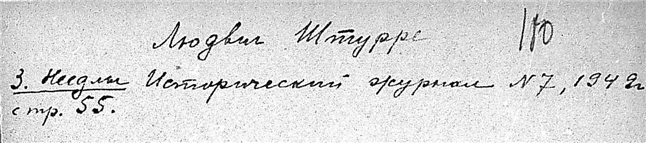 Людвиг Штурре 110
З. Неедлы Исторический журнал N 7, 1942г
стр. 55.